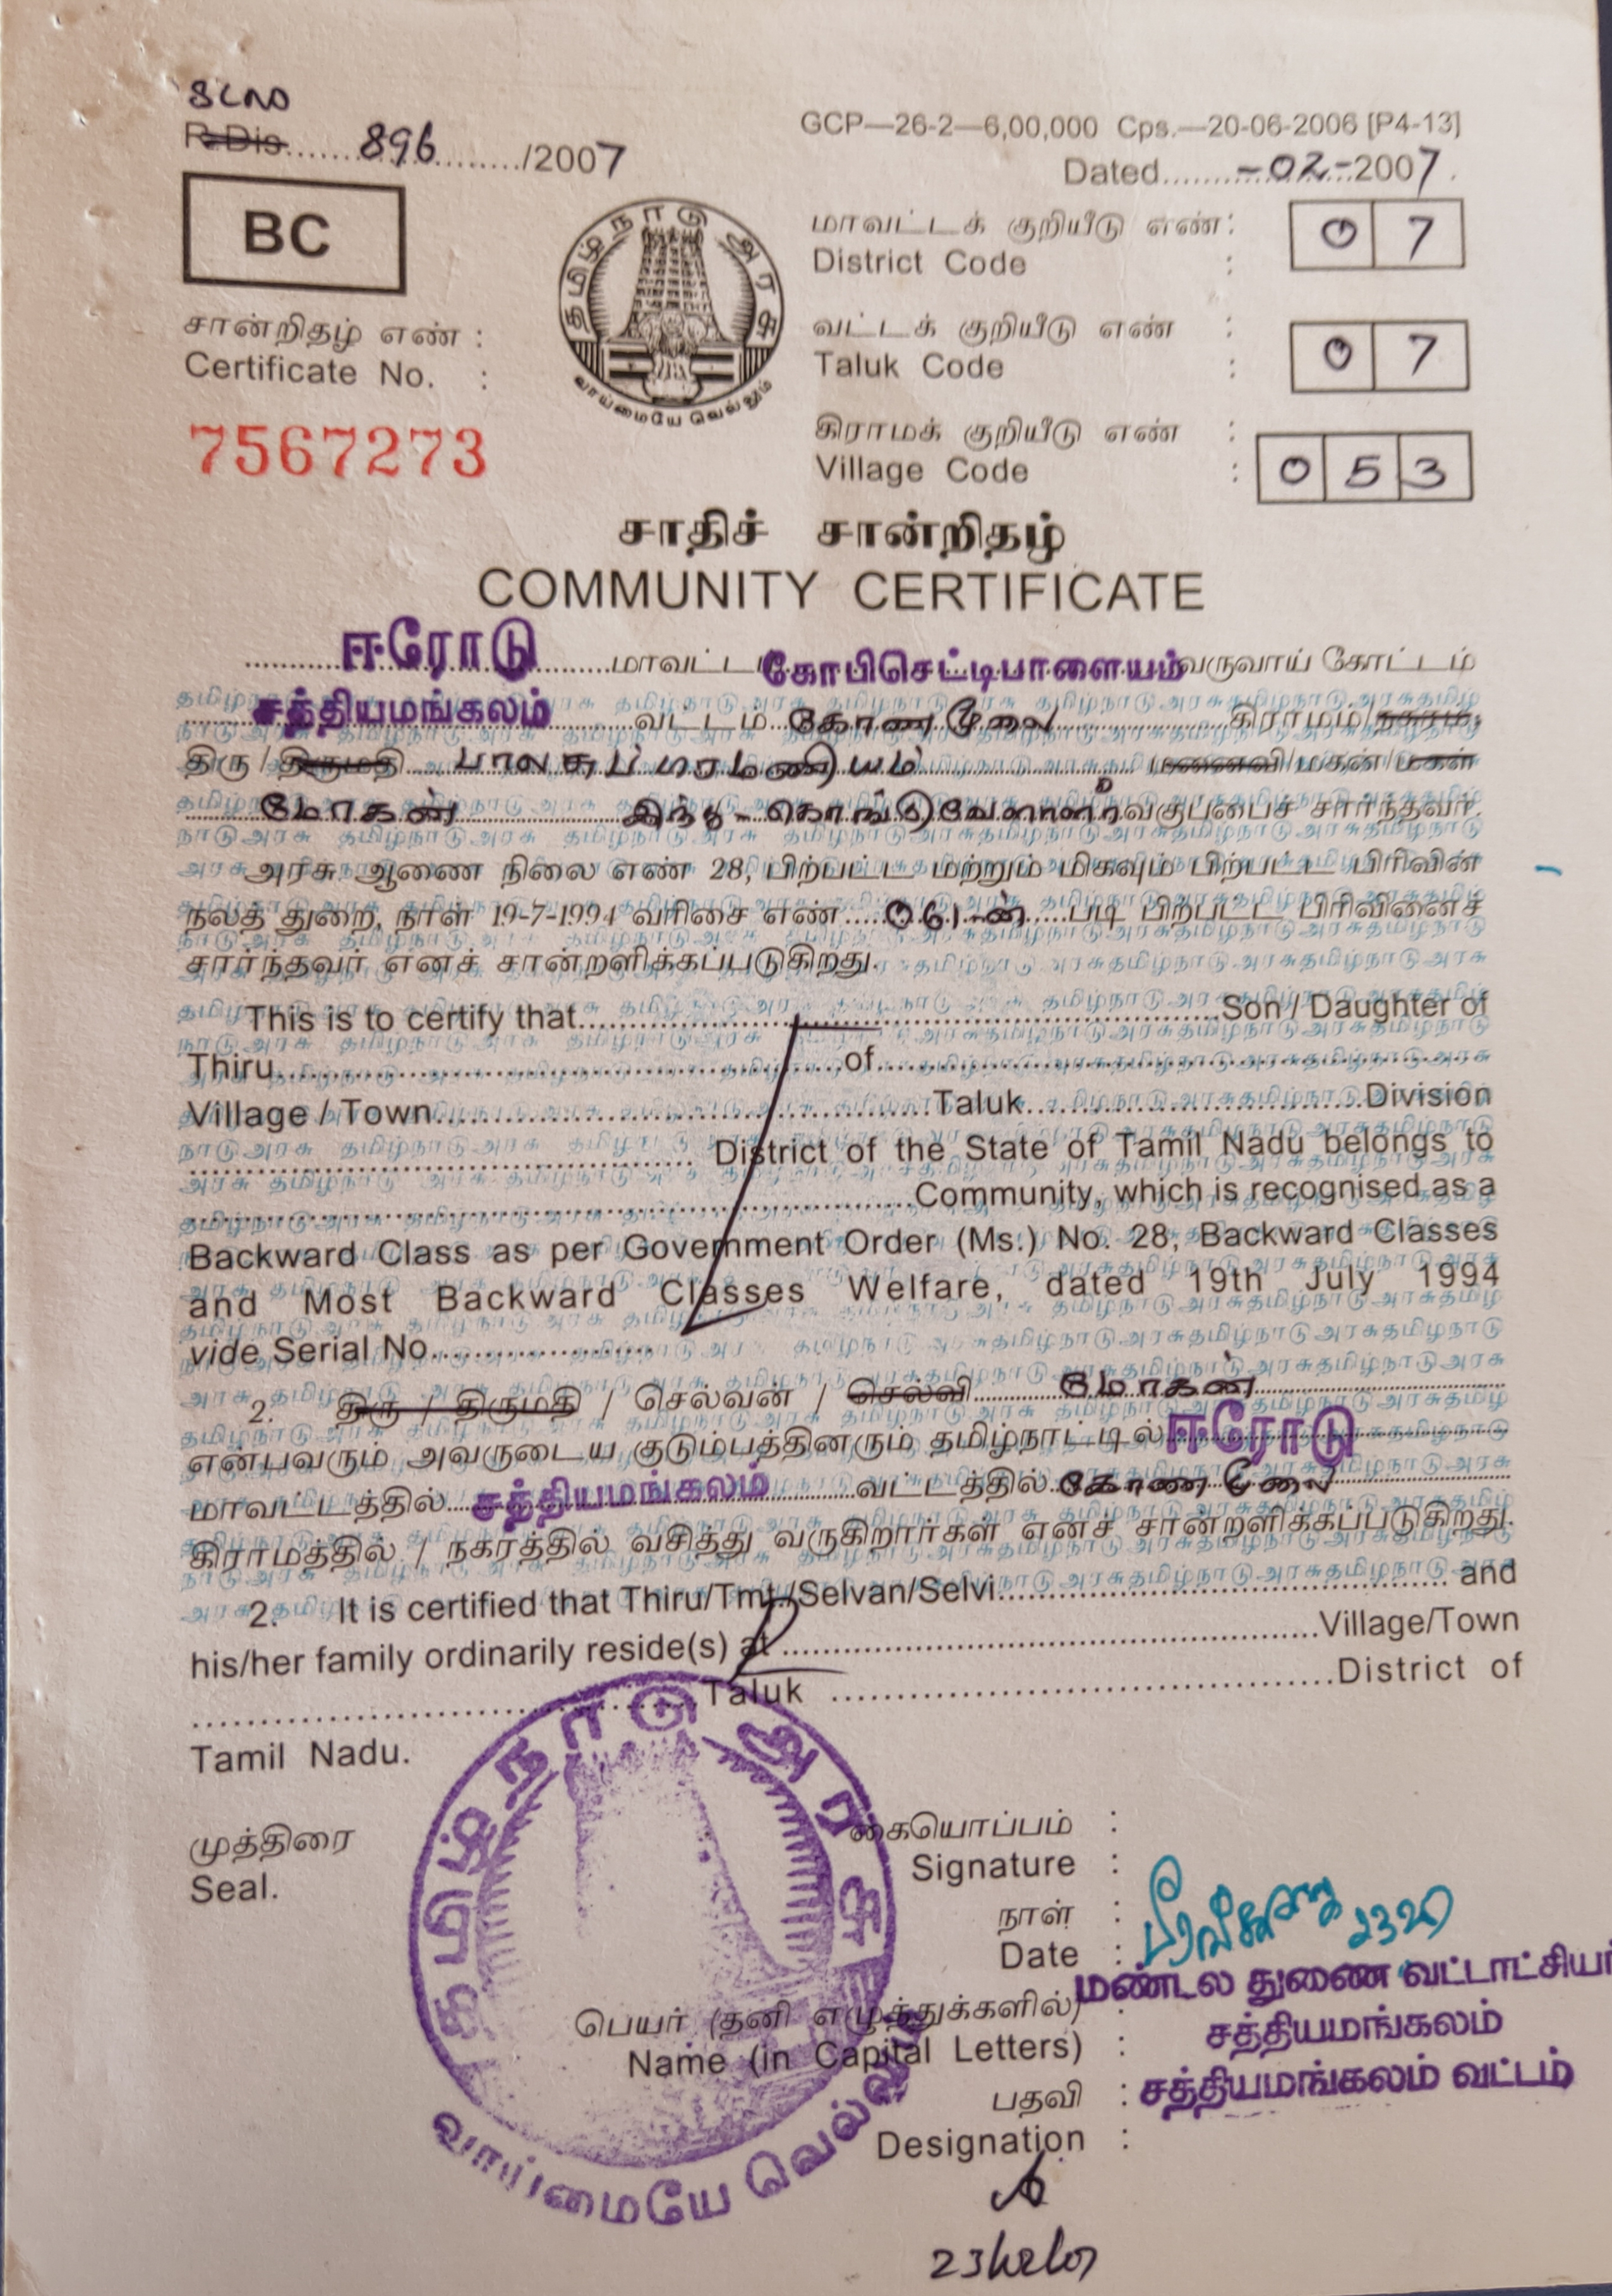 896 /2007
GCP—26-2—6,00,000 Cps.—20-06-2006 [P4-13]
Dated -02-2007.
BC
தமிழ்நாடு அரசு
வாய்மையே வெல்லும்
மாவட்டக் குறியீடு எண் :
District Code : 0 7
வட்டக் குறியீடு எண் :
Taluk Code : 0 7
கிராமக் குறியீடு எண் :
Village Code : 0 5 3
சான்றிதழ் எண் :
Certificate No. :
7567273
சாதிச் சான்றிதழ்
COMMUNITY CERTIFICATE
ஈரோடு மாவட்டம் கோபிசெட்டிபாளையம் வருவாய் கோட்டம்
சத்தியமங்கலம் வட்டம் கோணமூலை கிராமம்/நகரம்,
திரு/திருமதி பாலசுப்ரமணியம் மனைவி/மகன்/மகள்
மோகன் இந்து - கொங்குவேளாளர் வகுப்பைச் சார்ந்தவர்.
அரசு ஆணை நிலை எண் 28, பிற்பட்ட மற்றும் மிகவும் பிற்பட்ட பிரிவின்
நலத் துறை, நாள் 19-7-1994 வரிசை எண் 061-ன் படி பிற்பட்ட பிரிவினைச்
சார்ந்தவர் எனச் சான்றளிக்கப்படுகிறது.
This is to certify that Son / Daughter of
Thiru of
Village / Town Taluk Division
District of the State of Tamil Nadu belongs to
Community, which is recognised as a
Backward Class as per Government Order (Ms.) No. 28, Backward Classes
and Most Backward Classes Welfare, dated 19th July 1994
vide Serial No.
2. திரு / திருமதி / செல்வன் / செல்வி மோகன்
என்பவரும் அவருடைய குடும்பத்தினரும் தமிழ்நாட்டில் ஈரோடு
மாவட்டத்தில் சத்தியமங்கலம் வட்டத்தில் கோணமூலை
கிராமத்தில் / நகரத்தில் வசித்து வருகிறார்கள் எனச் சான்றளிக்கப்படுகிறது.
2. It is certified that Thiru/Tmt./Selvan/Selvi and
his/her family ordinarily reside(s) at Village/Town
Taluk District of
Tamil Nadu.
முத்திரை
Seal.
தமிழ்நாடு அரசு
வாய்மையே வெல்லும்
கையொப்பம் :
Signature :
நாள் :
Date :
பெயர் (தனி எழுத்துக்களில்) :
Name (in Capital Letters) :
பதவி :
Designation :
மண்டல துணை வட்டாட்சியர்
சத்தியமங்கலம்
சத்தியமங்கலம் வட்டம்